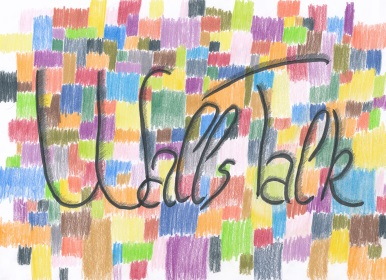 Walls Talk